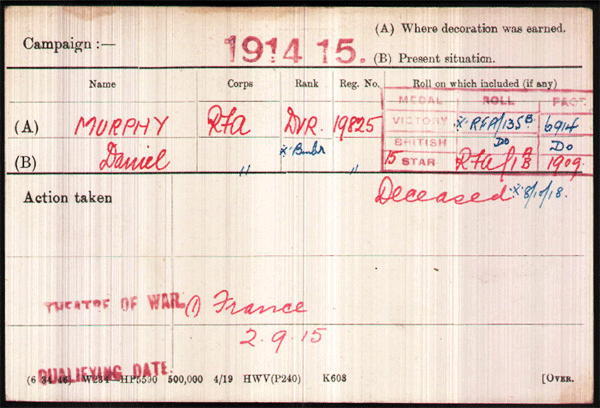 Campaign :—
1914 15.
(A) Where decoration was earned.
(B) Present situation.
Name Corps Rank Reg. No. Roll on which included (if any)
MEDAL ROLL PAGE
(A) MURPHY RFA DVR. 19825 VICTORY RFA/135B 6914
BRITISH Do Do
(B) Daniel " Bmbr " 15 STAR RFA/1 A B 1909
Action taken
Deceased 8/10/18.
THEATRE OF WAR. (1) France
2.9.15
QUALIFYING DATE.
(6 34 46) W234—HP5590 500,000 4/19 HWV(P240) K608 [OVER.